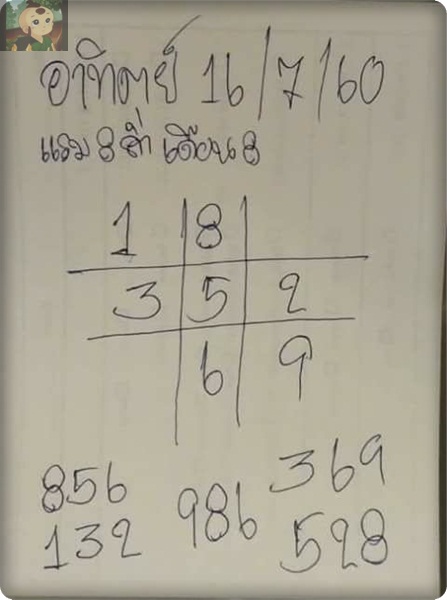 อาทิตย์ 16/7/60
แรม 8 ค่ำ เดือน 8
1 8
3 5 2
6 9
856 986 369
132 528